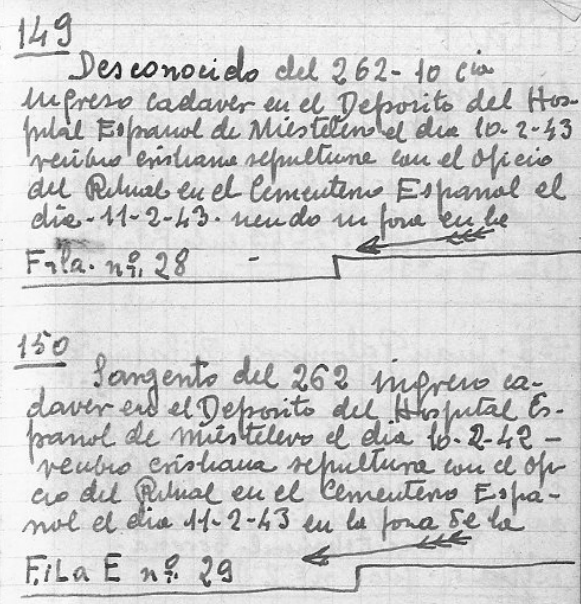 149
Desconocido del 262- 10 cia
ingreso cadaver en el Deposito del Hos-
pital Español de Miestelevo el dia 10-2-43
recibio cristiana sepultura con el oficio
del Ritual en el Cementerio Español el
dia-11-2-43. siendo su fosa en la
Fila. nº. 28 -
150
Sargento del 262 ingreso ca-
daver en el Deposito del Hospital Es-
pañol de miestelevo el dia 10-2-42 -
recibio cristiana sepultura con el ofi
cio del Ritual en el Cementerio Espa-
ñol el dia 11-2-43 en la fosa de la
FiLa E nº. 29